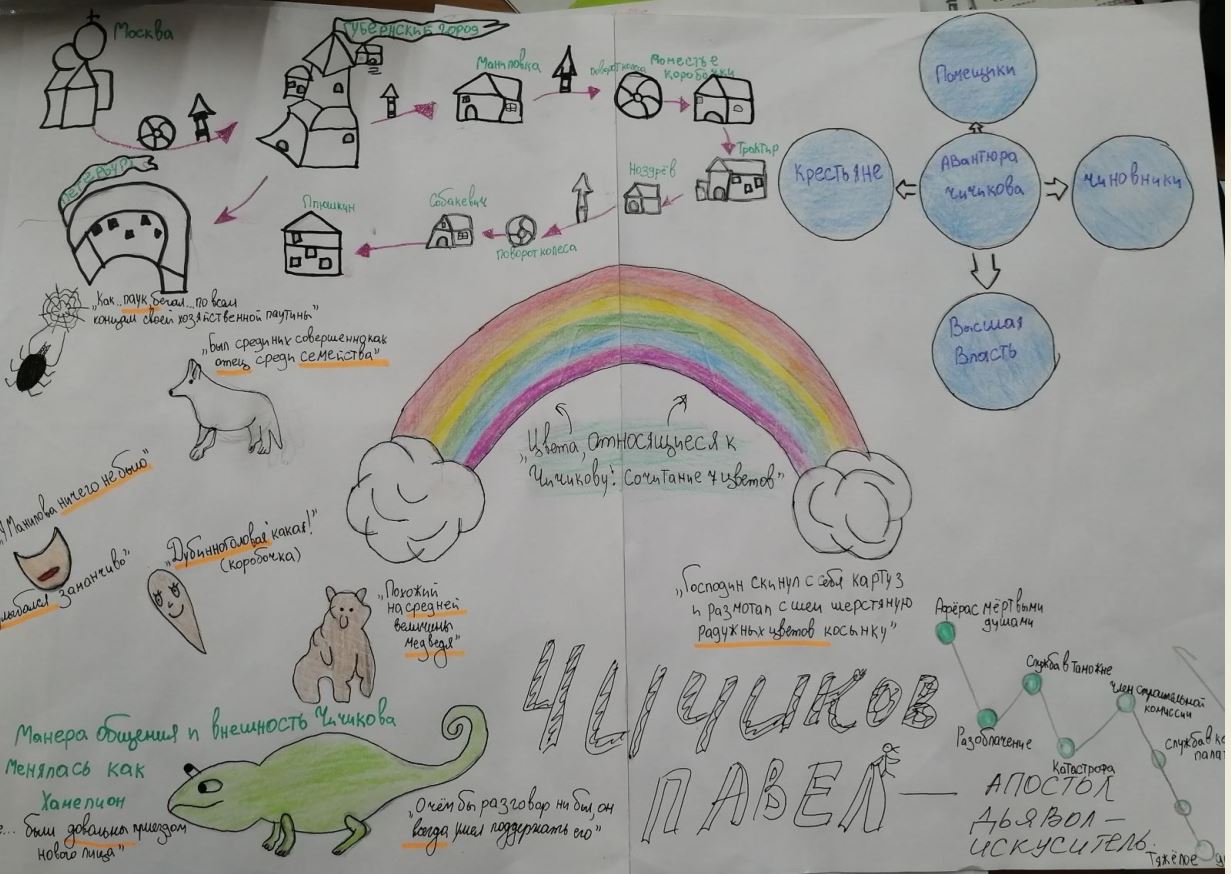 Москва
ГУБЕРНСКИЙ ГОРОД
Маниловка
поворот колеса
Поместье
Коробочки
Трактир
Ноздрёв
поворот колеса
Собакевич
Плюшкин
ПЕТЕРБУРГ
Помещики
Крестьяне
АВантюра
Чичикова
Чиновники
Высшая
Власть
„Как.. паук бегал...по всем
концам своей хозяйственной паутины"
„был среди них совершенно как
отец среди семейства"
„Цвета, относящиеся к
Чичикову! Сочитание 7 цветов"
„У Манилова ничего не было"
улыбался заманчиво"
„Дубинноголовая какая!"
(коробочка)
„Похожий
на средней
величины
медведя"
„Господин скинул с себя картуз
и размотал с шеи шерстяную
радужных цветов косынку"
ЧИЧИКОВ
ПАВЕЛ —
АПОСТОЛ
ДЬЯВОЛ –
ИСКУСИТЕЛЬ.
Афёра с мёртвыми
душами
Разоблачение
Служба в таможне
Катастрофа
член строительной
комиссии
Служба в
пала
Тяжёлое
Манера общения и внешность Чичикова
Менялась как
Хамелион
... были довольны приездом
нового лица"
„О чём бы разговор ни был, он
всегда умел поддержать его"